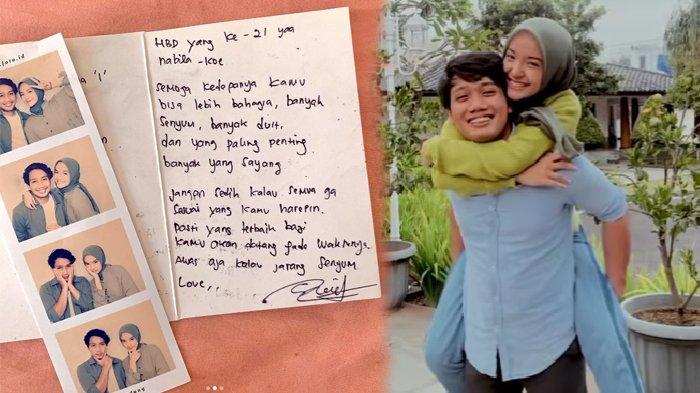 HBD yang ke - 21 yaa
nabila - koe
semoga kedepanya kamu
bisa lebih bahagia, banyak
senyum, banyak duit.
dan yang paling penting
banyak yang sayang
Jangan sedih kalau semua ga
sesuai yang kamu harepin.
pasti yang terbaik bagi
kamu akan datang pada waktunya.
Awas aja kalau jarang senyum
Love,,